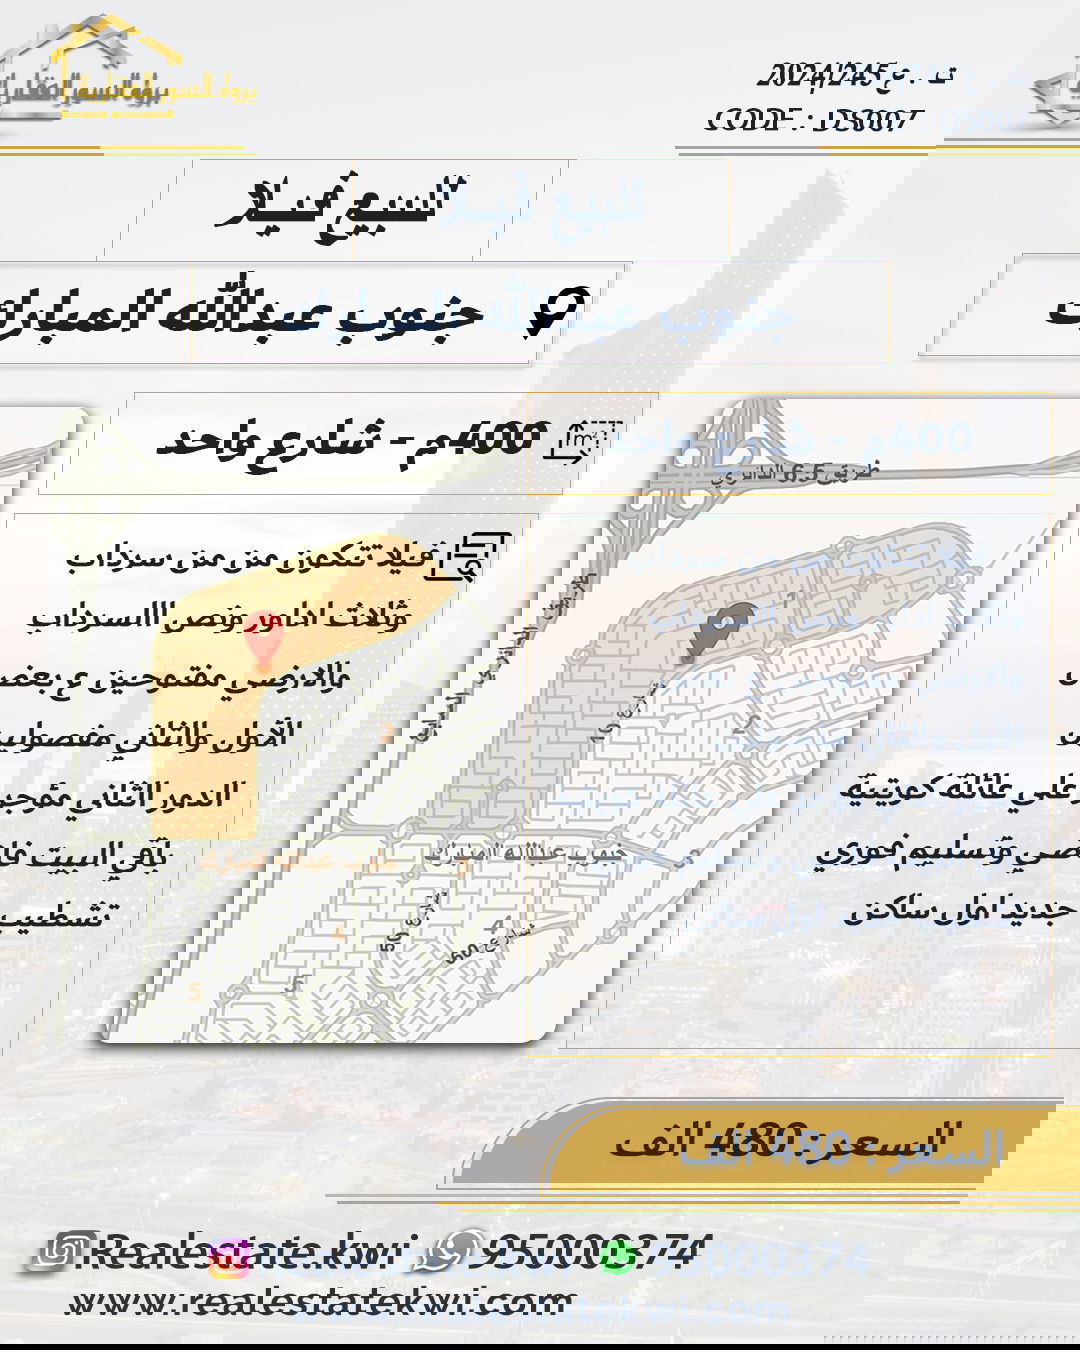 بروة السور العقارية
ت . ع 2024/245
CODE : DS007
للبيع فيلا
جنوب عبدالله المبارك
400م - شارع واحد
m²
طريق 6.5 الدائري
فيلا تتكون من من سرداب
وثلاث ادوار ونص االسرداب
والارضي مفتوحين ع بعض
الأول والثاني مفصولين
الدور الثاني مؤجر علي عائلة كويتية
باقي البيت فاضي وتسليم فوري
تشطيب جديد اول ساكن
جنوب عبدالله المبارك
شارع 50
شارع 60
5
السعر : 480 الف
Realestate.kwi
95000374
www.realestatekwi.com